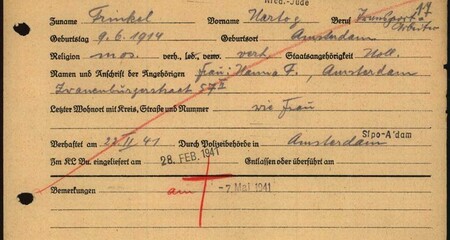 Nied.-Jude
Zuname Frinkel Vorname Hartog Beruf Transport-Arbeiter
Geburtstag 9.6.1914 Geburtsort Amsterdam
Religion mos. verh., led., verw. verh Staatsangehörigkeit Holl.
Namen und Anschrift der Angehörigen Frau: Hanna F., Amsterdam
57 II
Letzter Wohnort mit Kreis, Straße und Nummer wie Frau
Verhaftet am 22 II 41 Durch Polizeibehörde in Amsterdam Sipo-A'dam
Zm KL Bu. eingeliefert am 28. FEB. 1941 Entlassen oder überführt am
Bemerkungen am -7. Mai 1941